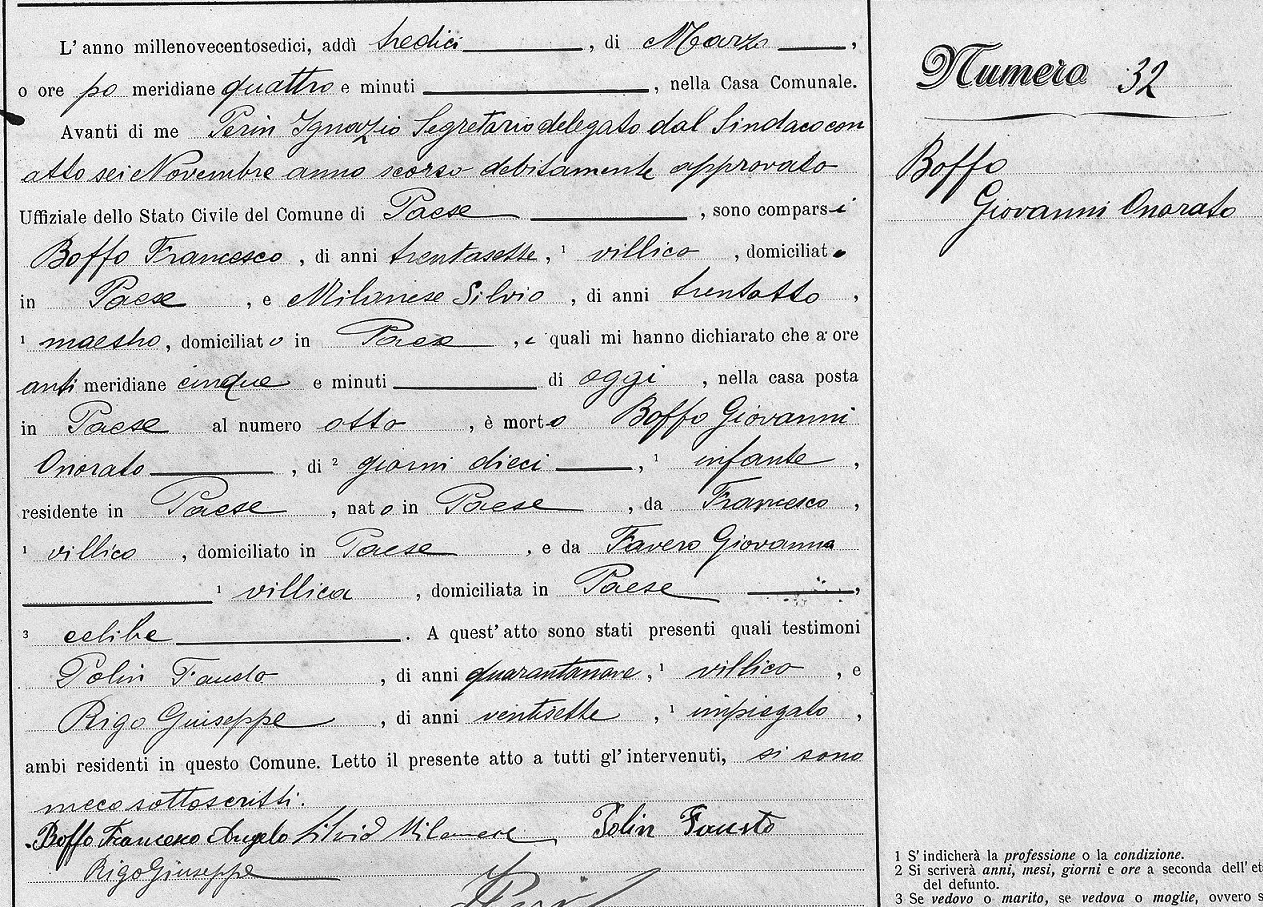 L'anno millenovecentosedici, addì tredici, di Marzo,
o ore po meridiane quattro e minuti , nella Casa Comunale.
Avanti di me Perin Ignazio Segretario delegato dal Sindaco con
atto sei Novembre anno scorso debitamente approvato
Uffiziale dello Stato Civile del Comune di Paese , sono comparsi
Boffo Francesco, di anni trentasette, ¹ villico, domiciliato
in Paese, e Milanese Silvio, di anni trentotto,
¹ maestro, domiciliato in Paese, i quali mi hanno dichiarato che a ore
anti meridiane cinque e minuti di oggi, nella casa posta
in Paese al numero otto, è morto Boffo Giovanni
Onorato, di ² giorni dieci, ¹ infante,
residente in Paese, nato in Paese, da Francesco,
¹ villico, domiciliato in Paese, e da Favero Giovanna
¹ villica, domiciliata in Paese,
³ celibe. A quest'atto sono stati presenti quali testimoni
Polin Fausto, di anni quarantanove, ¹ villico, e
Rigo Giuseppe, di anni ventisette, ¹ impiegato,
ambi residenti in questo Comune. Letto il presente atto a tutti gl'intervenuti, si sono
meco sottoscritti.
Boffo Francesco Angelo Silvio Milanese Polin Fausto
Rigo Giuseppe
Numero 32
Boffo
Giovanni Onorato
1 S'indicherà la professione o la condizione.
2 Si scriverà anni, mesi, giorni e ore a seconda dell'et
del defunto.
3 Se vedovo o marito, se vedova o moglie, ovvero s